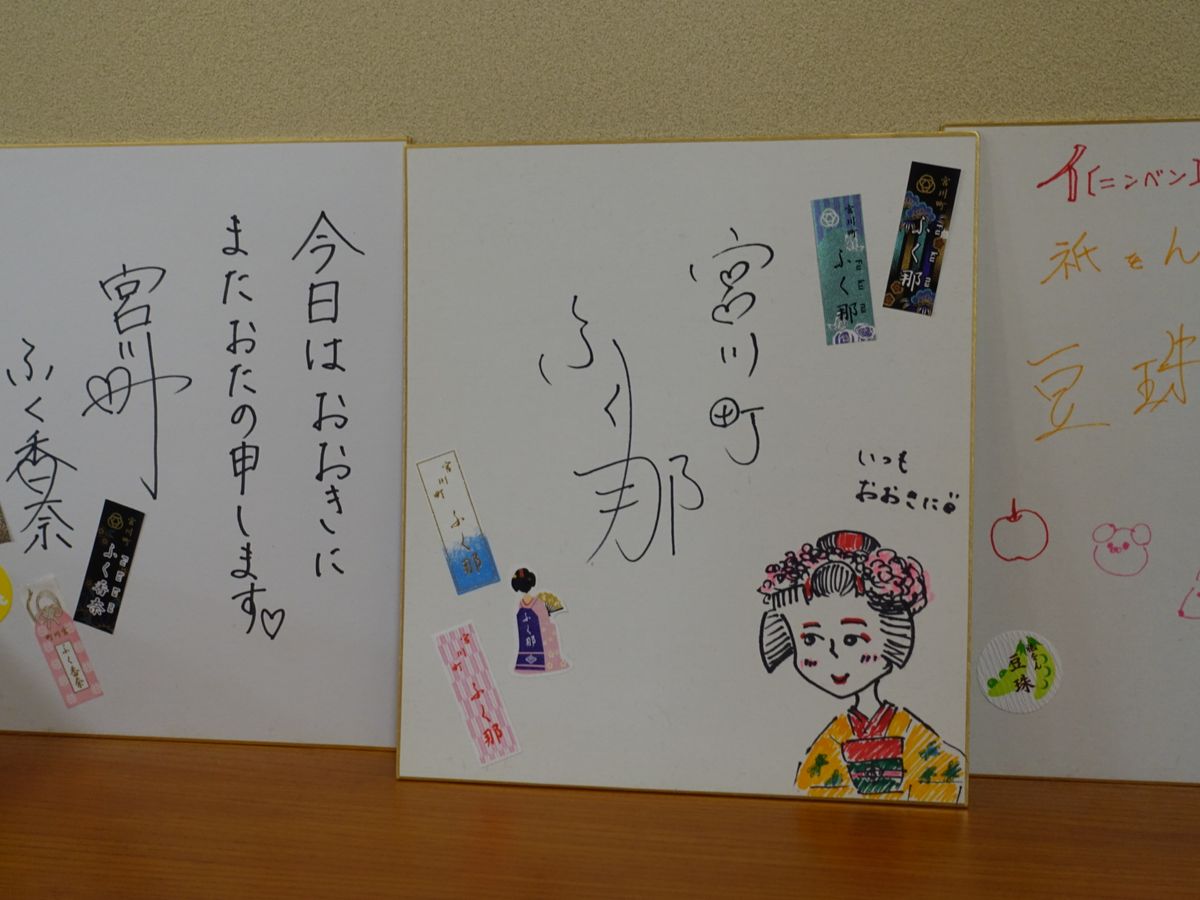 今日は おおきに
またおたの申します♡
宮川町
ふく香奈
宮川町
ふく香奈
宮川町
ふく香奈
宮川町
ふく那
いつも
おおきに
宮川町
ふく那
宮川町
ふく那
宮川町
ふく那
ふく那
宮川町
ふく那
イ[ニンベン]
祇をん
豆珠
祇をん
豆珠